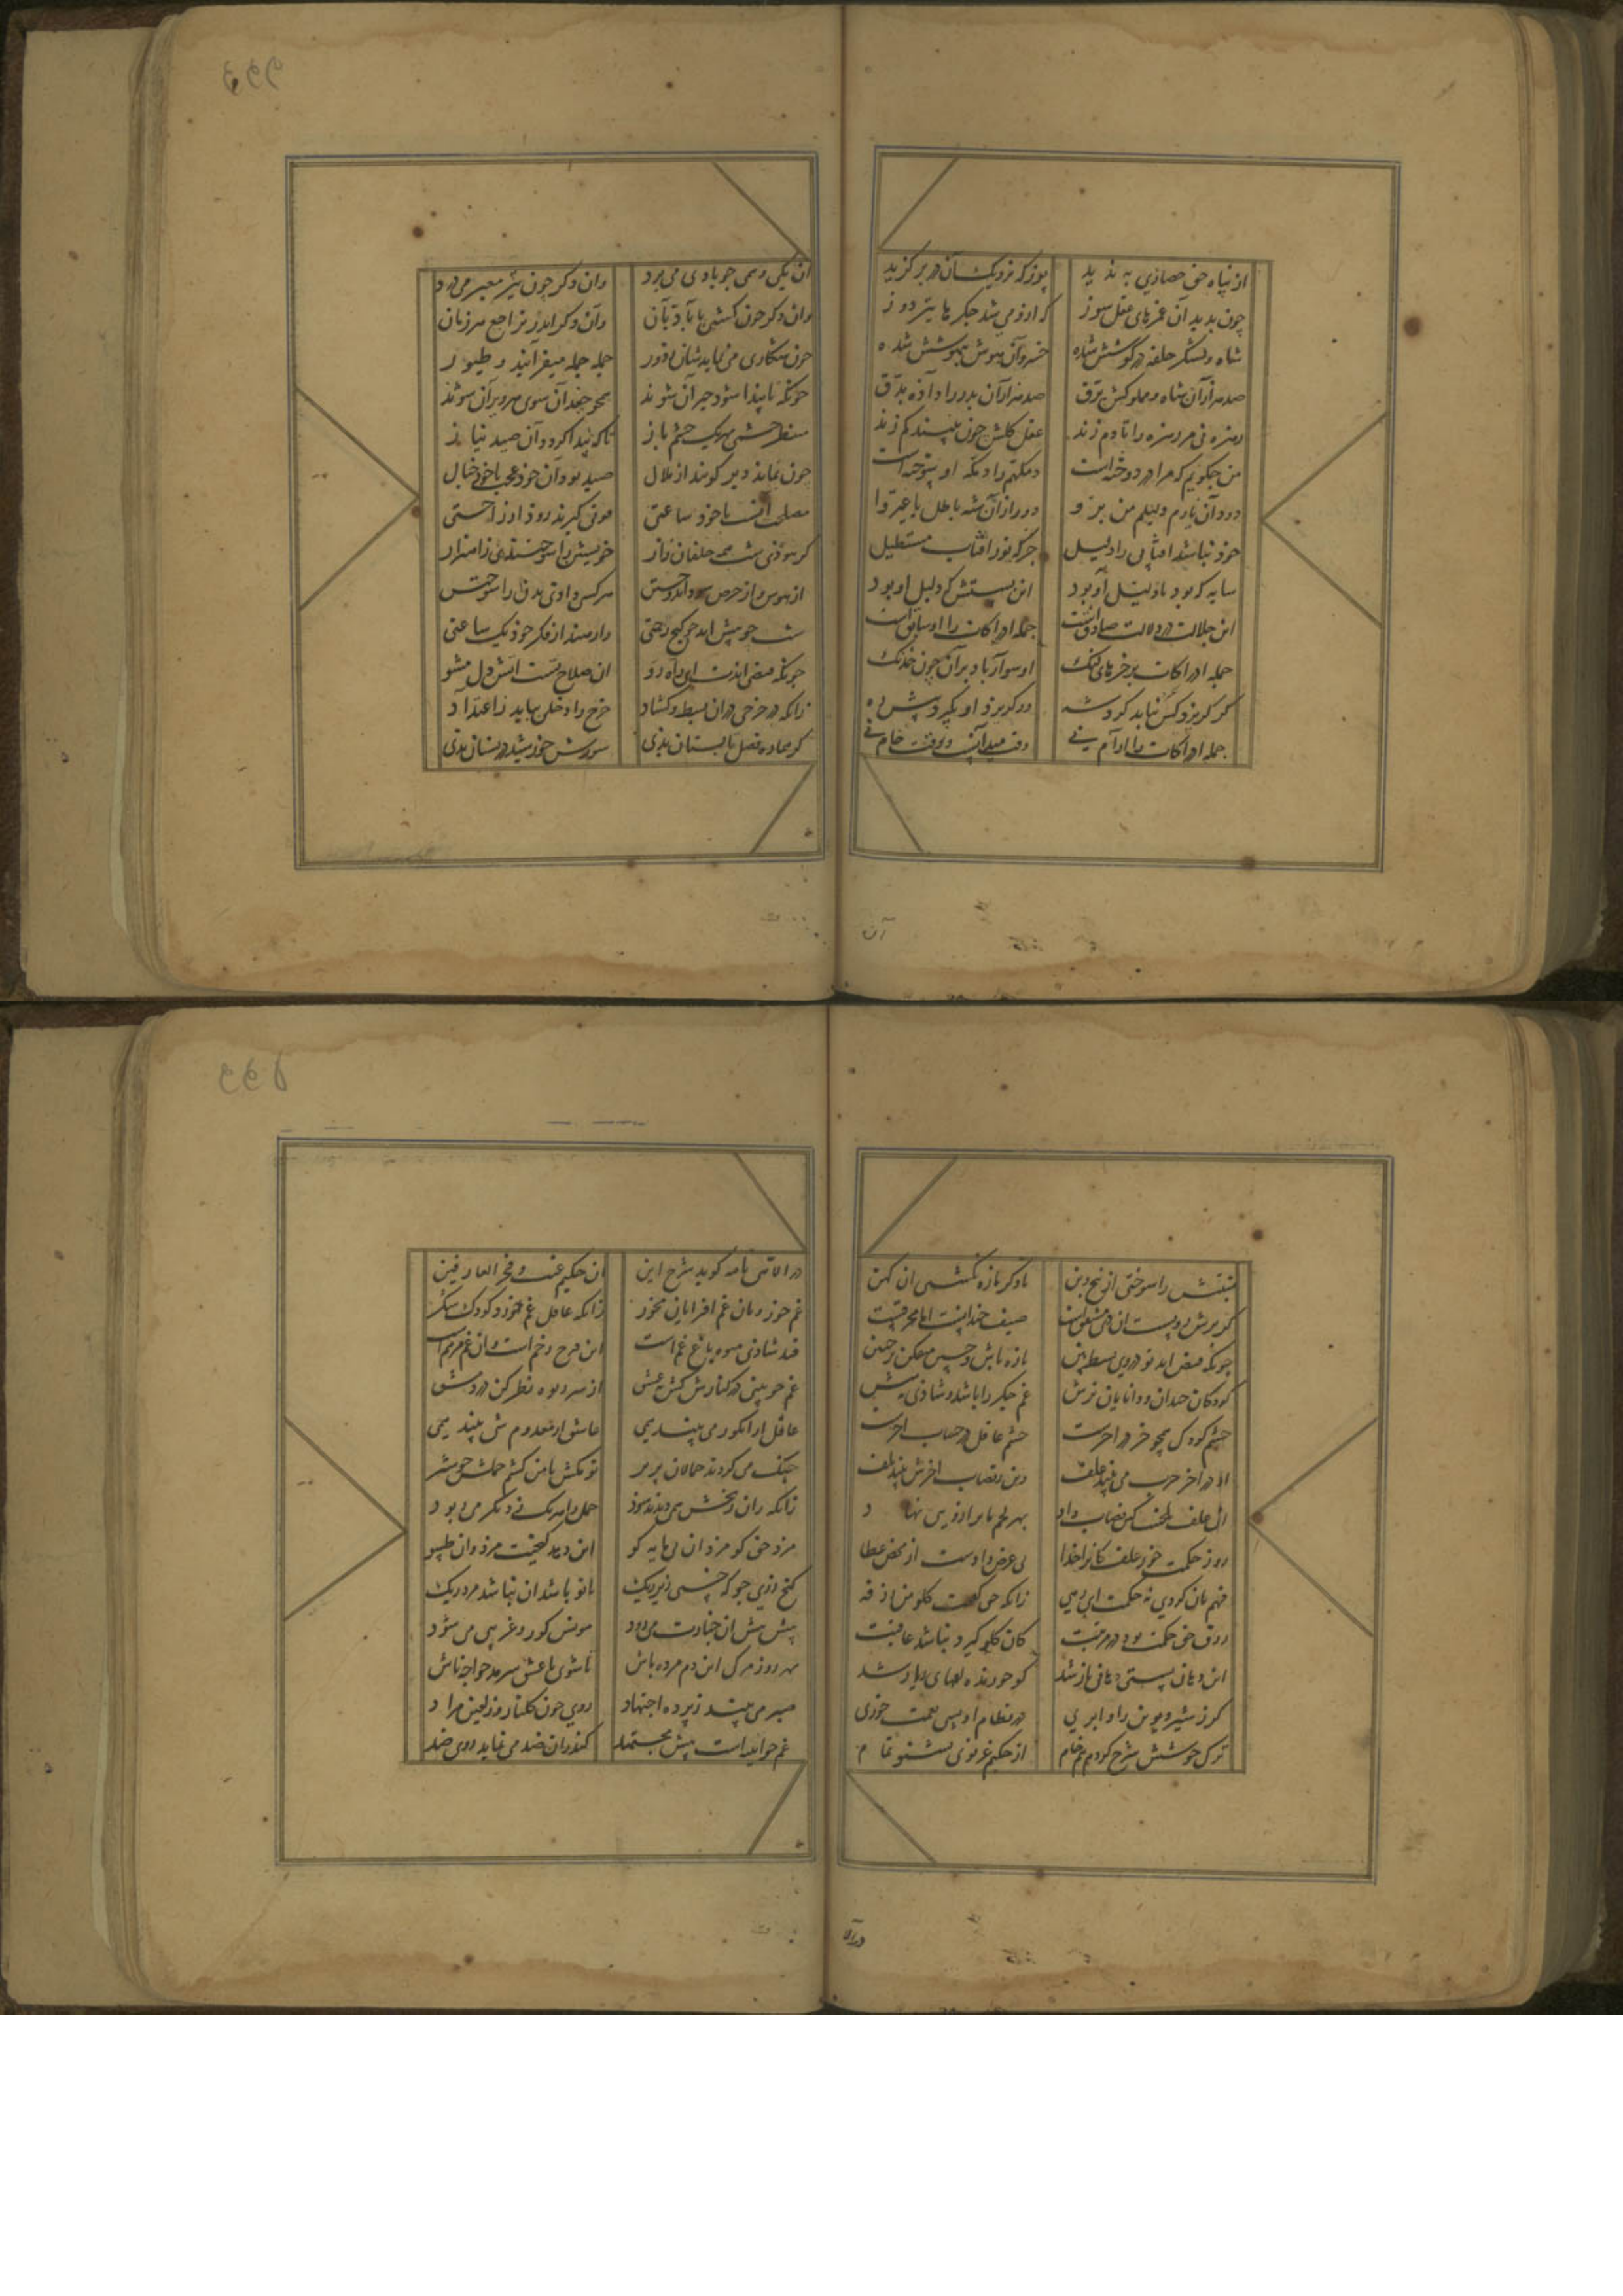 از پناه حق حصاری به ندید
یوز که نزدیک آن دز بر گزید
چون بدید آن غمزهای عقل سوز
که ازو می شد جگرها تیر دوز
شاه و لشکر حلقه در گوشش شده
خسروان هوش بیهوشش شده
صد هزاران شاه و مملوکش برق
صد هزاران بدر را داده بدق
زهره نی مر زهره را تا دم زند
عقل کلش چون بیند کم زند
من چگویم که مرا در دوخته است
دمگهم را دمگه او سوخته است
دود آن نارم دلیلم من برو
دور از آن شه باطل ما عبروا
خود نباشد آفتابی را دلیل
جز که نور آفتاب مستطیل
سایه که بود تا دلیل او بود
این بستش که ذلیل او بود
این جلالت در دلالت صادقست
جمله ادراکات را او سابق است
جمله ادراکات بر خرهای لنگ
او سوار باد بران چون خدنگ
گر گریزد کس نیابد گرد شه
ور گریزد او بگیرد پیش ره
جمله ادراکات را آرام نی
وقت میدانست وقت جام نی
آن یکی وهمی چو بازی می پرد
وان دگر چون تیر معبر می درد
وان دگر چون کشتی با بادبان
وآن دگر اندر تراجع هر زمان
چون شکاری می نمایدشان ز دور
جمله حمله میفزایند و طیور
چونکه ناپیدا شود حیران شوند
همچو جغدان سوی هر ویران شوند
منتظر چشمی بهم یک چشم باز
تا که پیدا گردد آن صید نیاز
چون بماند دیر گویند از ملال
صید بود آن خود عجب یا خود خیال
مصلحت آنست تا خود ساعتی
قوتی گیرند و زور از راحتی
گر نبودی شب همه خلقان ز آز
خویشتن را سوختندی ز اهتزاز
از هوس وز حرص سود اندوختن
هر کسی دادی بدن را سوختن
شب چو پیش آید چو گنج رحمتی
وارهند از فکر خود یک ساعتی
چونکه قبضی آیدت ای راه رو
آن صلاح تست آتش دل مشو
زانکه در خرجی در آن بسط و گشاد
خرج را دخلی بباید ز اعتداد
گر هماره فصل تابستان بدی
سوزش خورشید در بستان بدی
منبتش را سوختی از بیخ و بن
تا دگر تازه نگشتی آن کهن
گر ترش رویست آن دی مشفق است
صیف خندانست اما محرقست
چونکه قبض آید تو در وی بسط بین
تازه باش و چین میفکن بر جبین
کودکان خندان و دانایان ترش
غم جگر را باشد و شادی ز شش
چشم کودک همچو خر در آخرست
چشم عاقل در حساب آخرست
او در آخر چرب می بیند علف
وین ز قصاب آخرش بیند تلف
آن علف تلخست کین قصاب داد
بهر لحم ما ترازویی نهاد
رو ز حکمت خور علف کانرا خدا
بی عرض دادست از محض عطا
فهم نان کردی نه حکمت ای رهی
زانکه حق گفتت کلوا من رزقه
رزق حق حکمت بود در مرتبت
کان گلو گیرد نباشد عاقبت
این دهان بستی دهانی باز شد
کو خورنده لقمهای راز شد
گر ز شیر دیو تن را وابری
در فطام او بسی نعمت خوری
ترک جوشش شرح کردم نیم خام
از حکیم غزنوی بشنو تمام
در الهی نامه گوید شرح این
آن حکیم غیب و فخر العارفین
غم خور و نان غم افزایان مخور
زانکه عاقل غم خورد کودک شکر
قند شادی میوه باغ غم است
این فرح زخم است وان غم مرهم است
غم چو بینی در کنارش کش بعشق
از سر ربوه نظر کن در دمشق
عاقل از انگور می بیند همی
عاشق از معدوم شی بیند همی
جنگ می کردند حمالان پریر
تو مکش تا من کشم حملش چو شیر
زانکه زان رنجش همی دیدند سود
حمل را هر یک ز دیگر می ربود
مزد حق کو مزد آن بی مایه کو
این دهد گنجیت مزد و آن تسو
گنج زری چو که خسپی زیر ریگ
با تو باشد آن نباشد مردریگ
پیش پیش آن جنازت می دود
مونس گور و غریبی می شود
بهر روز مرگ این دم مرده باش
تا شوی با عشق سرمد خواجه تاش
صبر می بیند ز پرده اجتهاد
روی چون گلنار و زلفین مراد
غم چو آئینه است پیش مجتهد
کاندر آن ضد می نماید روی ضد
آن
در الا